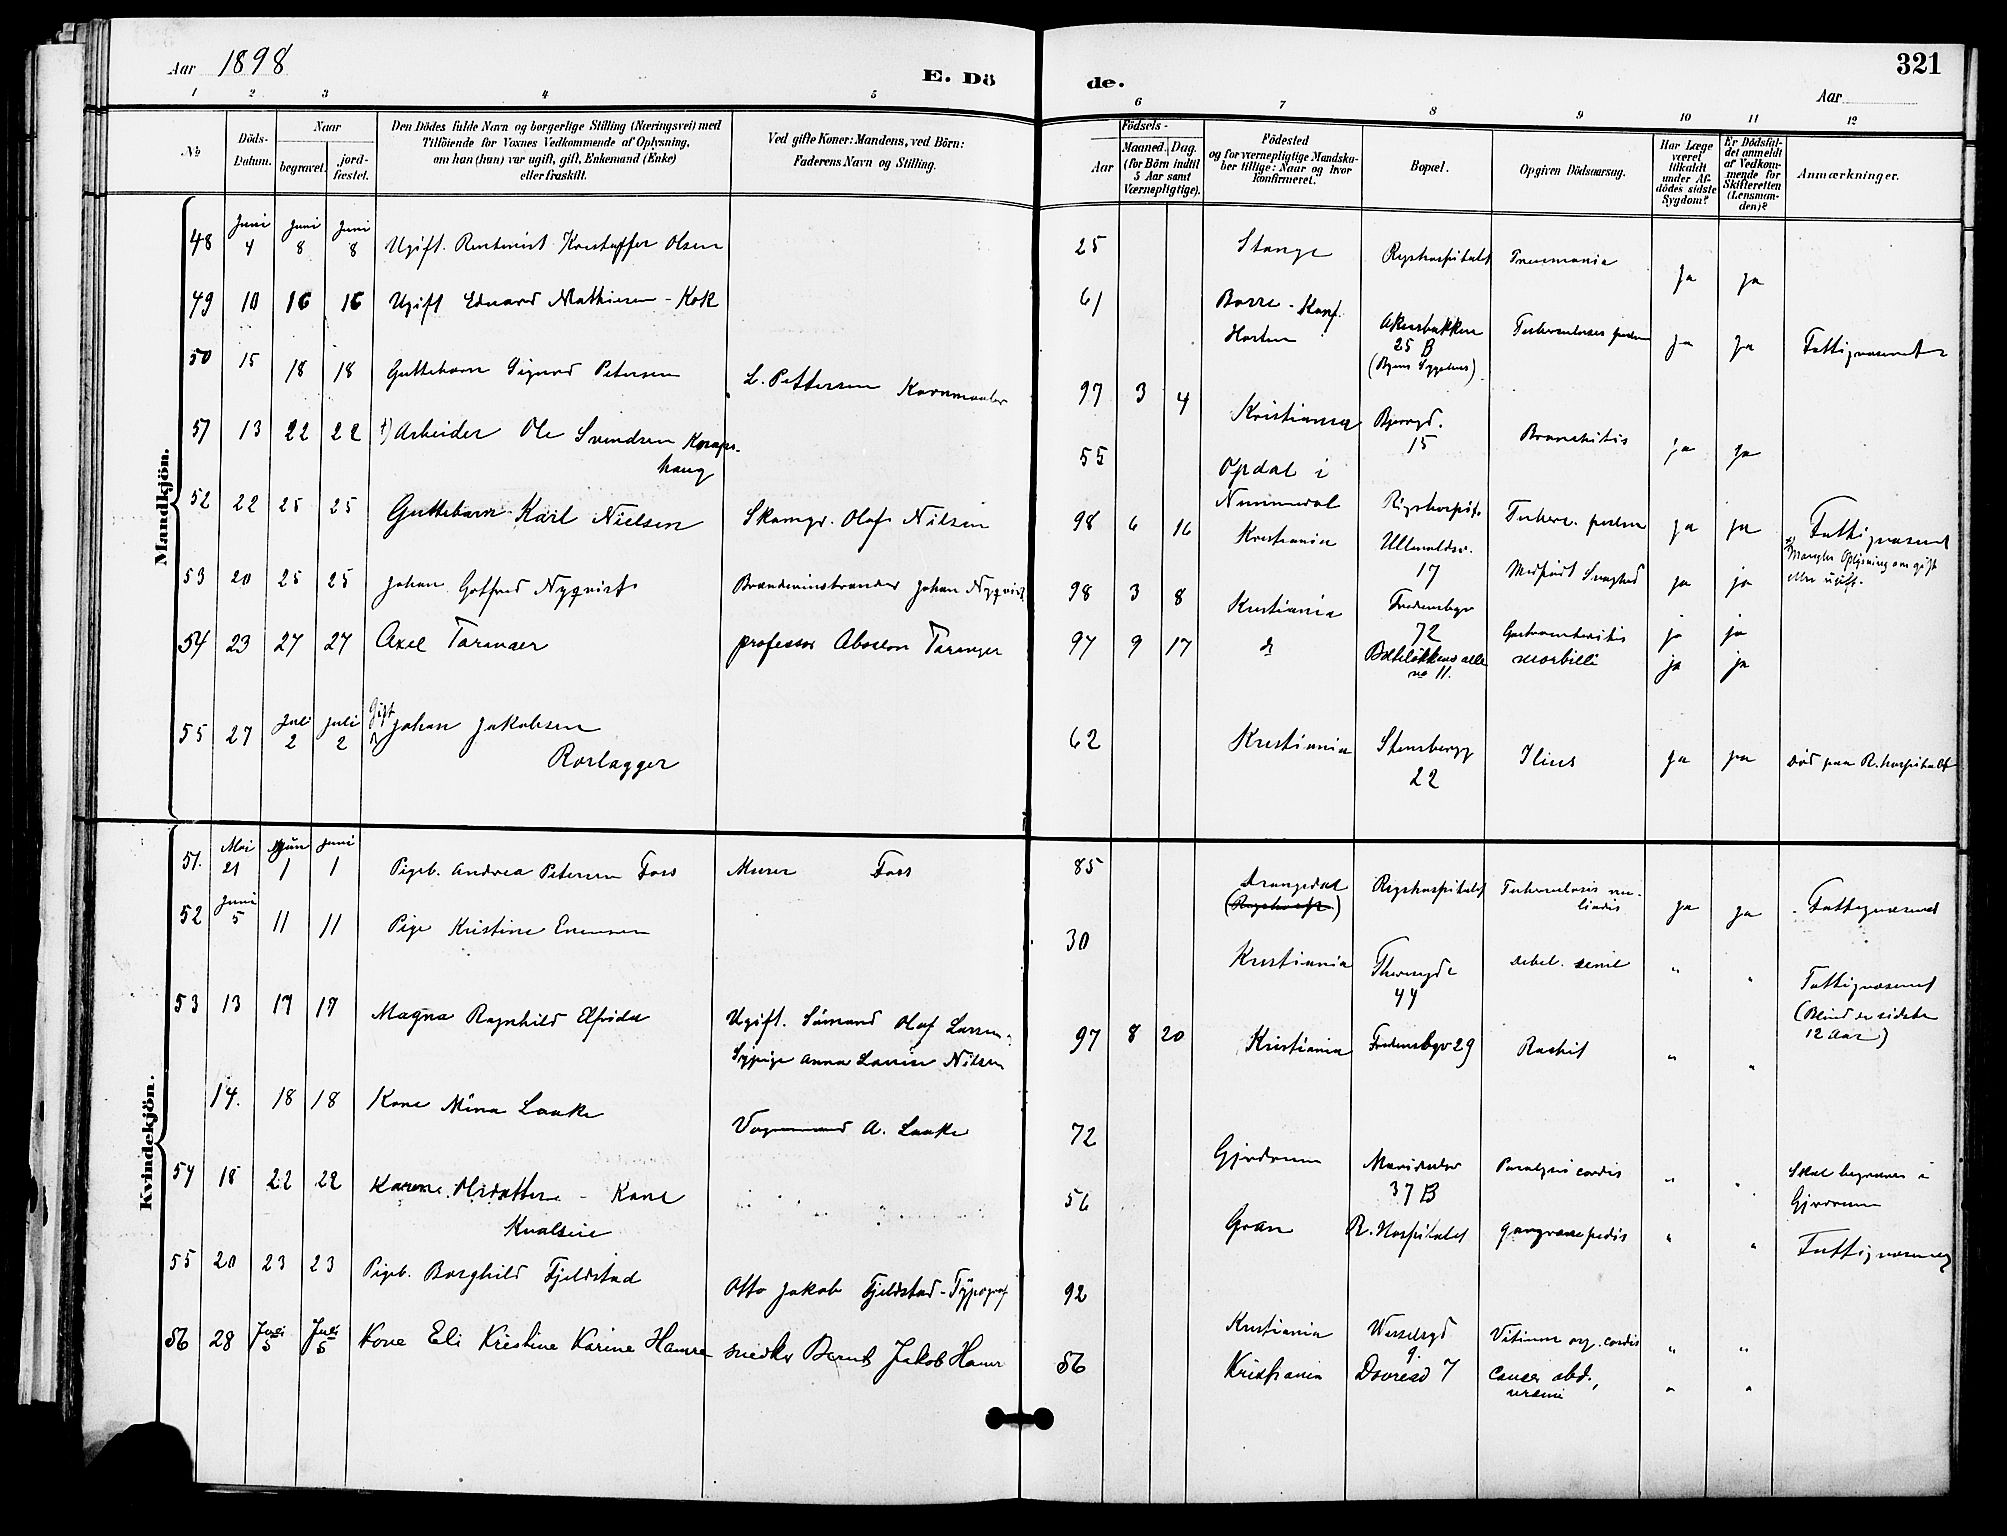 Aar 1898
E. Dö de.
321
Aar
1 2 3 4 5 6 7 8 9 10 11 12
No
Döds-Datum.
Naar
begravet.
jord-fæstet.
Den Dödes fulde Navn og borgerlige Stilling (Næringsvei) med
Tilföiende for Voxnes Vedkommende af Oplysning,
om han (hun) var ugift, gift, Enkemand (Enke)
eller fraskilt.
Ved gifte Koner: Mandens, ved Börn:
Faderens Navn og Stilling.
Födsels-
Aar
Maaned. Dag.
(for Börn indtil
5 Aar samt
Værnepligtige).
Födested
og for værnepligtige Mandska-
ber tillige: Naar og hvor
konfirmeret.
Bopæl.
Opgiven Dödsaarsag.
Har Læge
været
tilkaldt
under Af-
dödes sidste
Sygdom?
Er Dödsfal-
det anmeldt
af Vedkom-
mende for
Skifteretten
(Lensman-
den)?
Anmærkninger.
Mandkjön.
48 Juni 4 Juni 8 Juni 8 Ugift. Kristoffer Olsen 25 Stange Rigshospitalet Pneumonia Ja Ja
49 10 16 16 Ugift Eduard Mathiesen - Kok 61 Borre - Konf. Horten Akersbakken 25 B (Byens Sygehus) Ja Ja Fattigvæsenet
50 15 18 18 Guttebarn Sigurd Petersen L. Pettersen 97 3 4 Kristiania 15 Bronchitis ja ja
51 13 22 22 1) Arbeider Ole Svendsen 55 Opdal i Nummedal Rigshospit. Tuberc. ja ja Fattigvæsenet
1) Mangler Oplysning om gift eller ugift.
52 22 25 25 Guttebarn Karl Nielsen Olaf Nilsen 98 6 16 Kristiania Ullevoldsv. 17 Medfødt Svaghed ja ja
53 20 25 25 Johan Gotfred Nyqvist Johan Nyqvist 98 3 8 Kristiania 72 Gastroenteritis ja ja
54 23 27 27 Axel Taranger professor Absalon Taranger 97 9 17 do Bolteløkkens alle no 11. morbilli ja ja
55 27 Juli 2 Juli 2 Gift Johan Jakobsen
62 Kristiania Stensbergg 22 Ileus ja ja død paa R. hospitalet
Kvindekjön.
51. Mai 21 Juni 1 Juni 1 Pigeb. Andrea Petersen Foss Murer Foss 85 Drangedal Rigshospitalet Tuberculosis miliaris ja ja Fattigvæsenet
52 Juni 5 11 11 Pige Kristine Evensen 30 Kristiania Theresegde 44 Debil. senil " " Fattigvæsenet
(Blind de sidste
12 Aar)
53 13 17 17 Magna Ragnhild Elfrida Ugift. Sømand Olaf Larsen,
Sypige Anna Lovise Nilsen 97 8 20 Kristiania Fredensbgv 29 Rachit " "
14. 18 18 Kone Mina Laake Vognmand A. Laake 72 Gjerdrum Maridalsv 37 B Paralysis cordis " " Skal begraves i
Gjerdrum
54 18 22 22 Karen Olsdatter - Kone
56 Gran R. Hospitalet gangræna pedis " " Fattigvæsenet
55 20 23 23 Pigeb. Borghild Fjeldstad Otto Jakob Fjeldstad - Typograf 92 Kristiania Wesselsgd 9. Vitium org. cordis " "
56 28 Juli 5 Juli 5 Kone Eli Kristine Karine Hamre snedker Bernt Jakob Hamr 56 Kristiania Dovregd 7 Cancer abd., uræmi " "